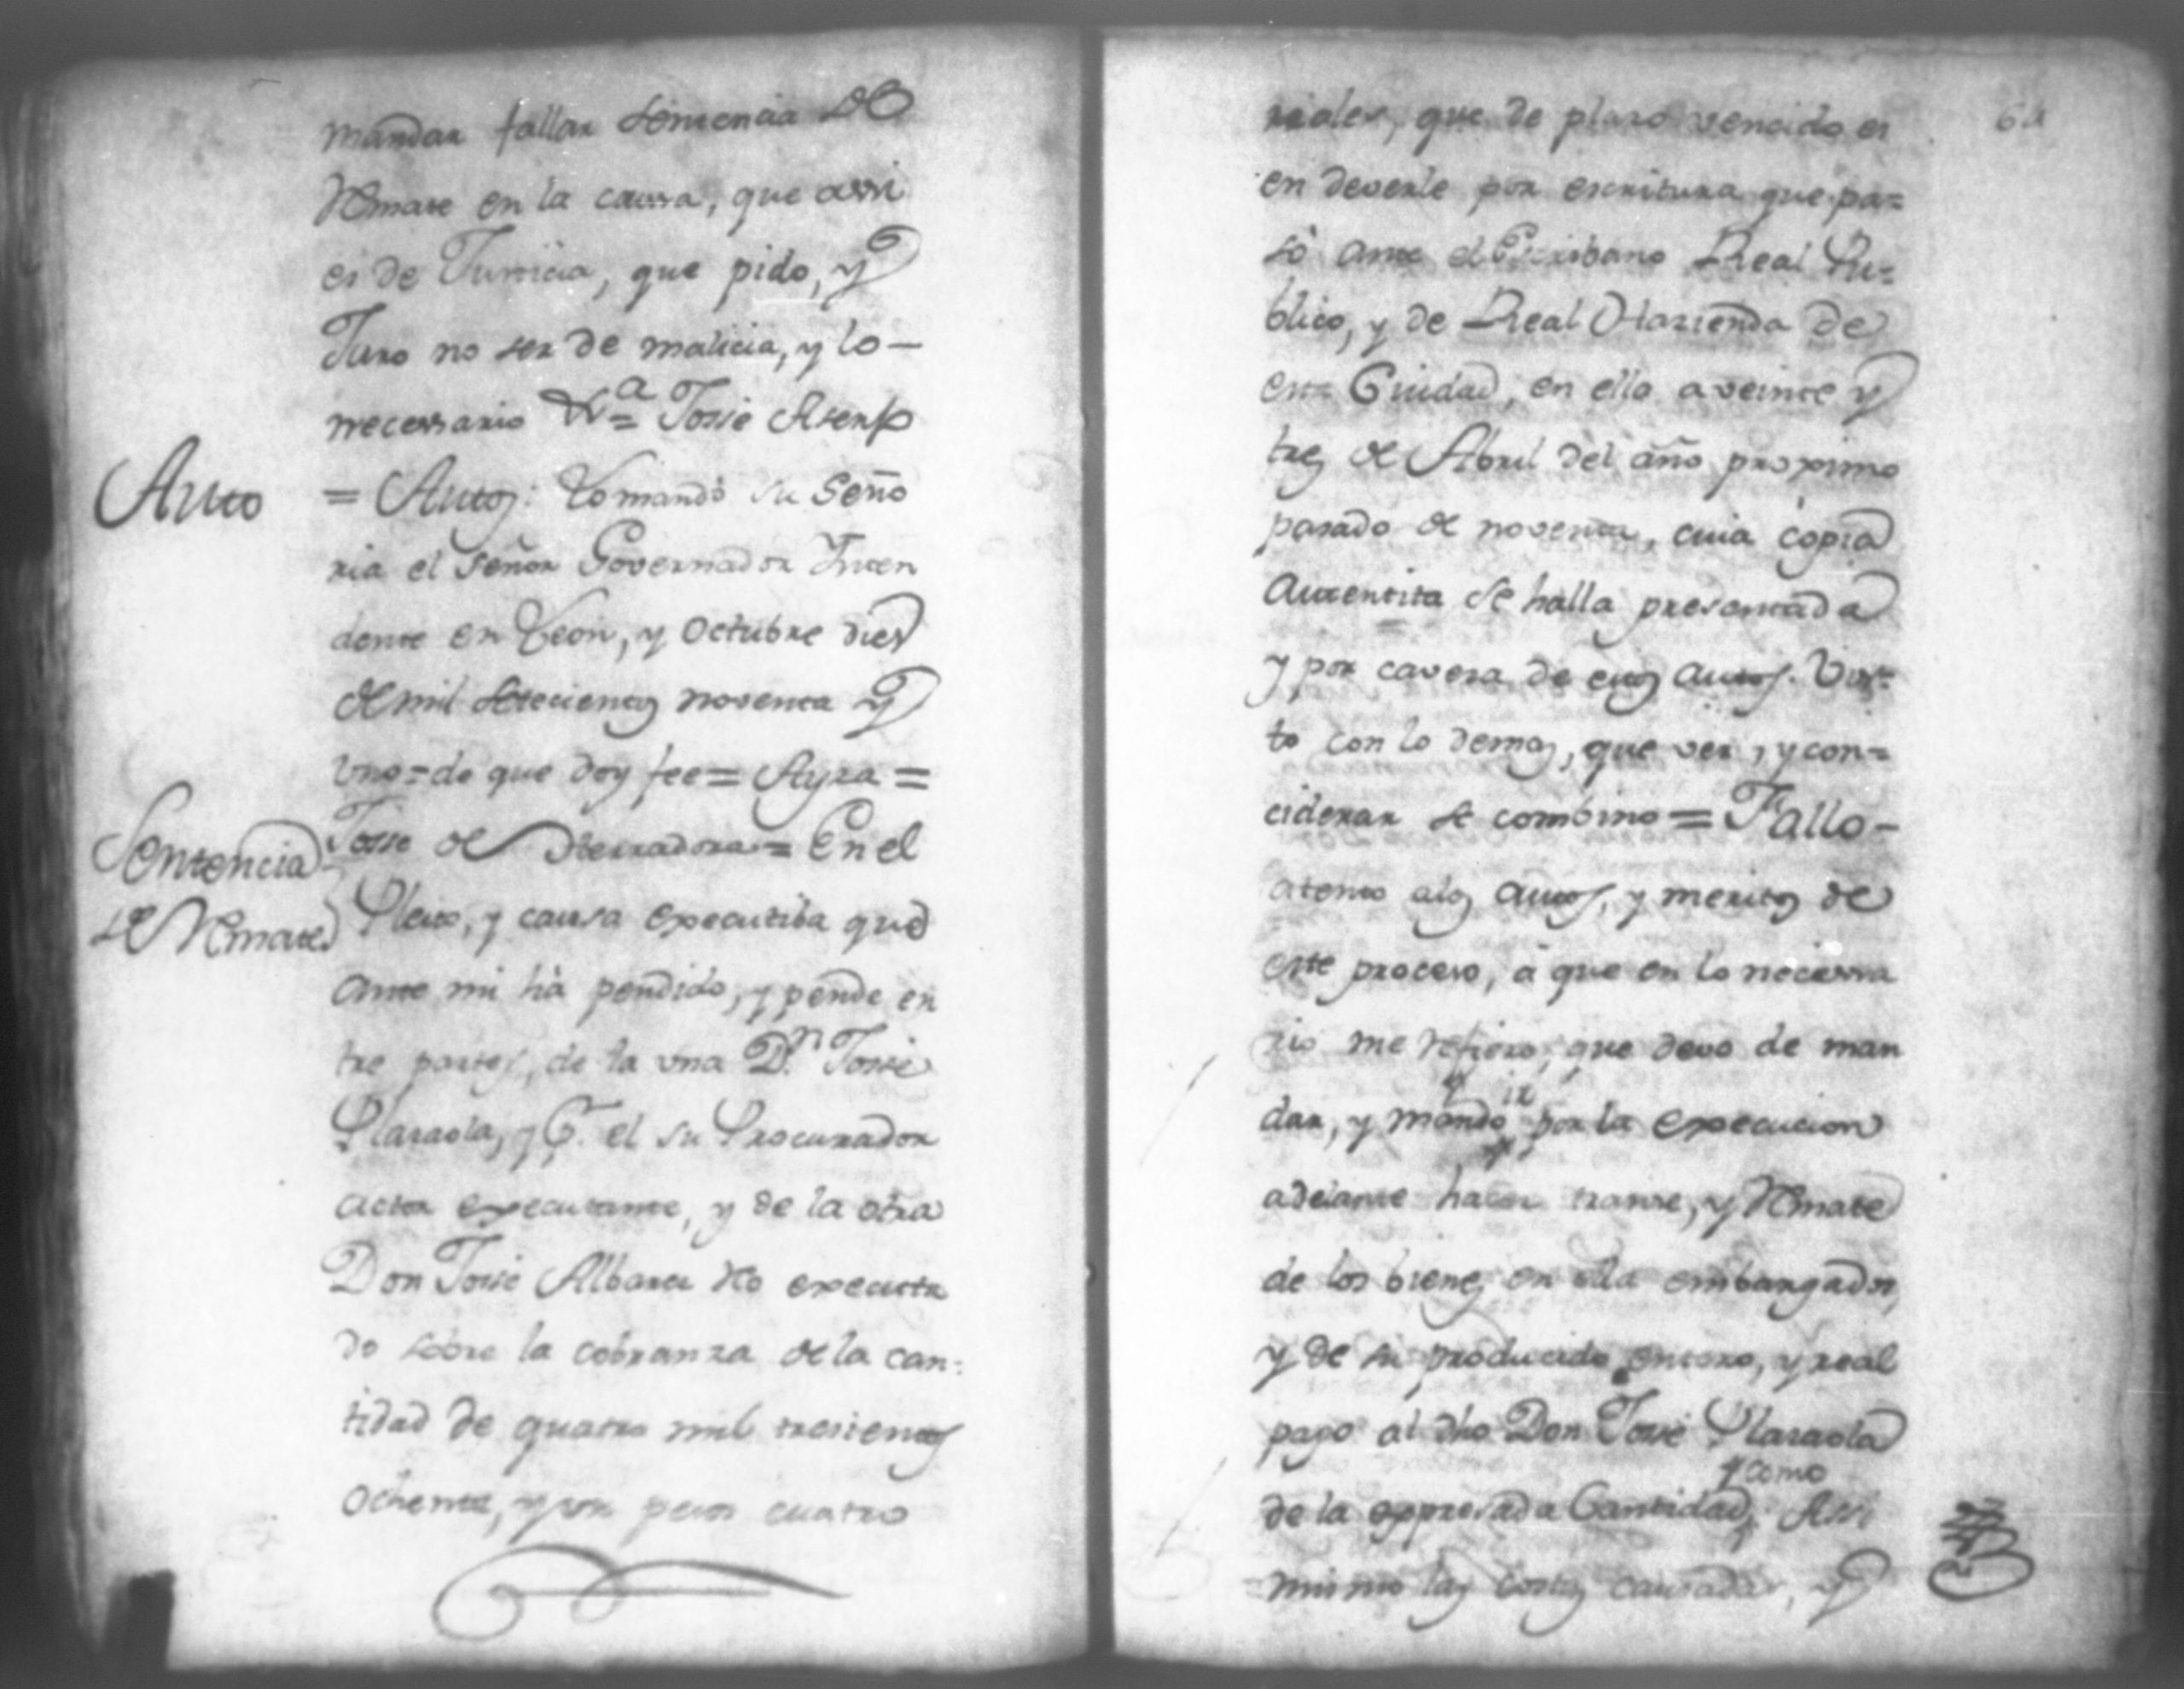 mandar fallar sentencia de
Remate en la causa, que assi
es de Justicia, que pido, y
Juro no ser de malicia, y lo –
necessario Vª = Josse Asenjo
Auto
= Autos: Lo mandó su Seño
ria el Señor Governador Inten
dente en Leon, y Octubre dies
de mil setecientos noventa y
uno = de que doy fee = Ayza =
Sentencia
de Remate
Josse de Herradora = En el
Pleito, y causa executiba que
ante mi há pendido, y pende en
tre partes, de la una D.n Josse
Plazaola, y P.r el su Procurador
actor executante, y de la otra
Don Josse Albarez Reo executa
do sobre la cobranza de la can=
tidad de quatro mil trescientos
ochenta, y un pesos cuatro
64
reales, que de plazo vencido es
en deverle por escritura que pa=
só ante el Escribano Real Pu=
blico, y de Real Hazienda de
esta Ciudad, en ella a veinte y
tres de Abril del año proximo
pasado de noventa, cuia copia
autentita se halla presentada
y por cavesa de estos autos. Vis=
to con lo demas, que ver, y con=
ciderar se combino = Fallo –
atento a los autos, y meritos de
este proceso, á que en lo necessa
rio me refiero, que devo de man
dar, y mando ir por la execucion
adelante hacer transe, y Remate
de los bienes en ella embargados,
y de su producido entero, y real
pago al dho Don Josse Plazaola
como
de la expresada Cantidad, Assi
mismo las costas causadas, y